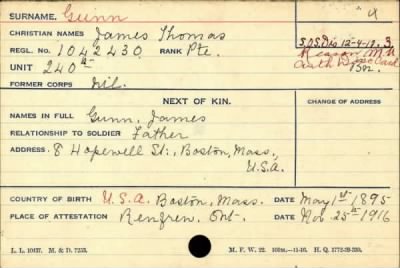 SURNAME. Gunn
4
CHRISTIAN NAMES James Thomas
REGL. NO. 1042430 RANK Pte.
S.O.S. Dis 12-4-19. 3
UNIT 240th
FORMER CORPS Nil.
NEXT OF KIN.
CHANGE OF ADDRESS
NAMES IN FULL Gunn, James
RELATIONSHIP TO SOLDIER Father
ADDRESS 8 Hopewell St., Boston, Mass.,
U.S.A.
COUNTRY OF BIRTH U.S.A. Boston, Mass. DATE May 1st 1895
PLACE OF ATTESTATION Renfrew. Ont. DATE Nov. 25th 1916
L. L. 10437. M. & D. 7253. M. F. W. 22. H. Q. 1772-39-339.